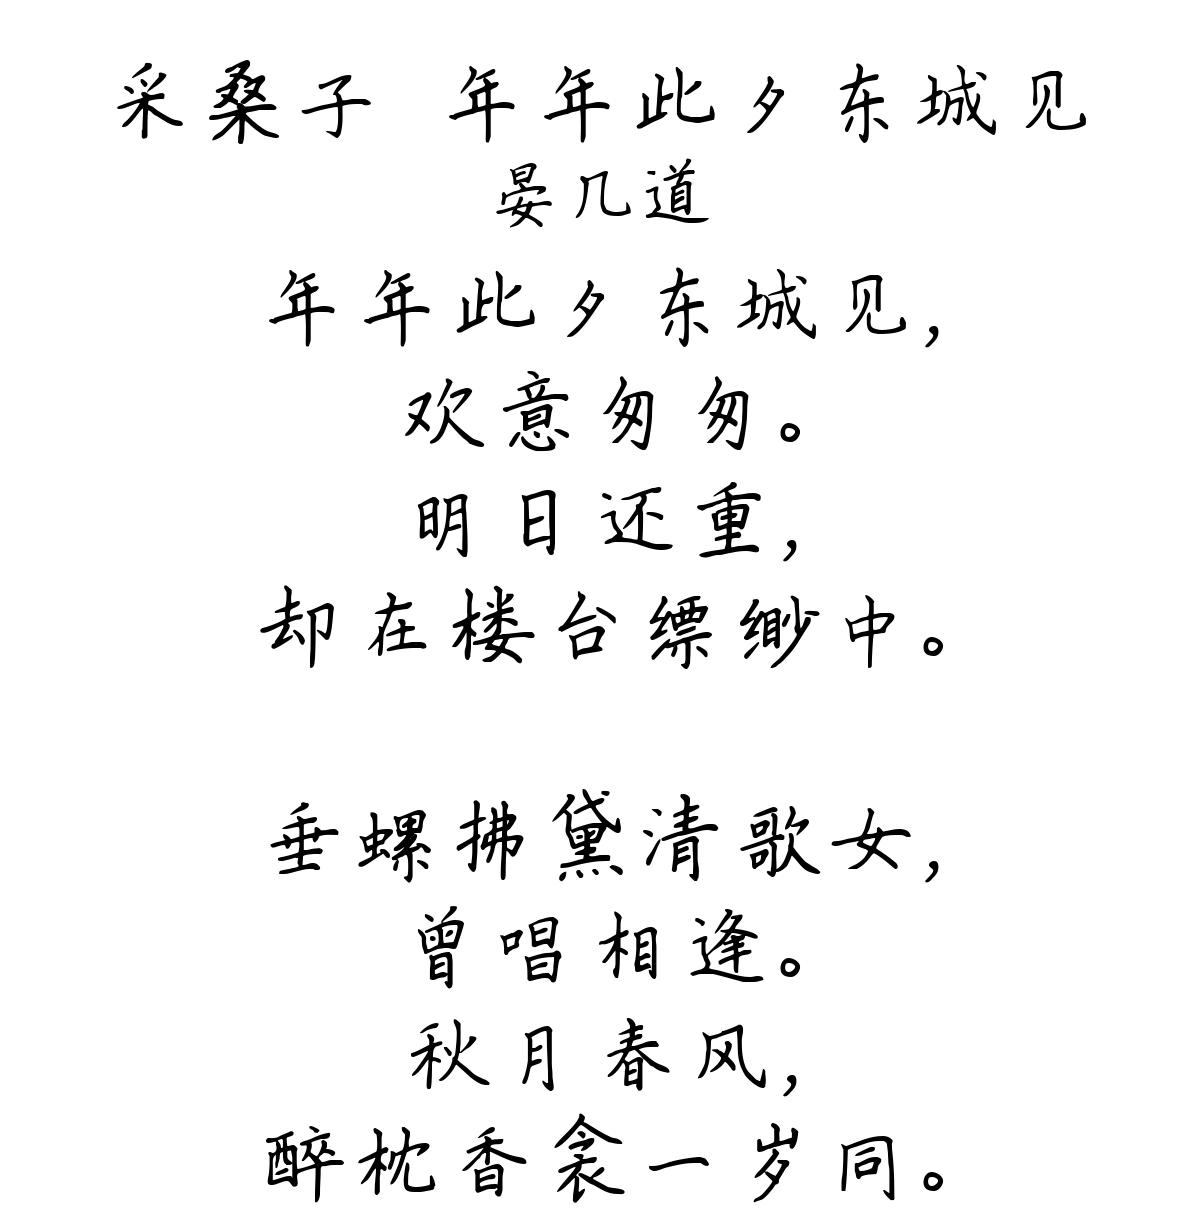 采桑子 年年此夕东城见
晏几道
年年此夕东城见,
欢意匆匆。
明日还重,
却在楼台缥缈中。
垂螺拂黛清歌女,
曾唱相逢。
秋月春风,
醉枕香衾一岁同。